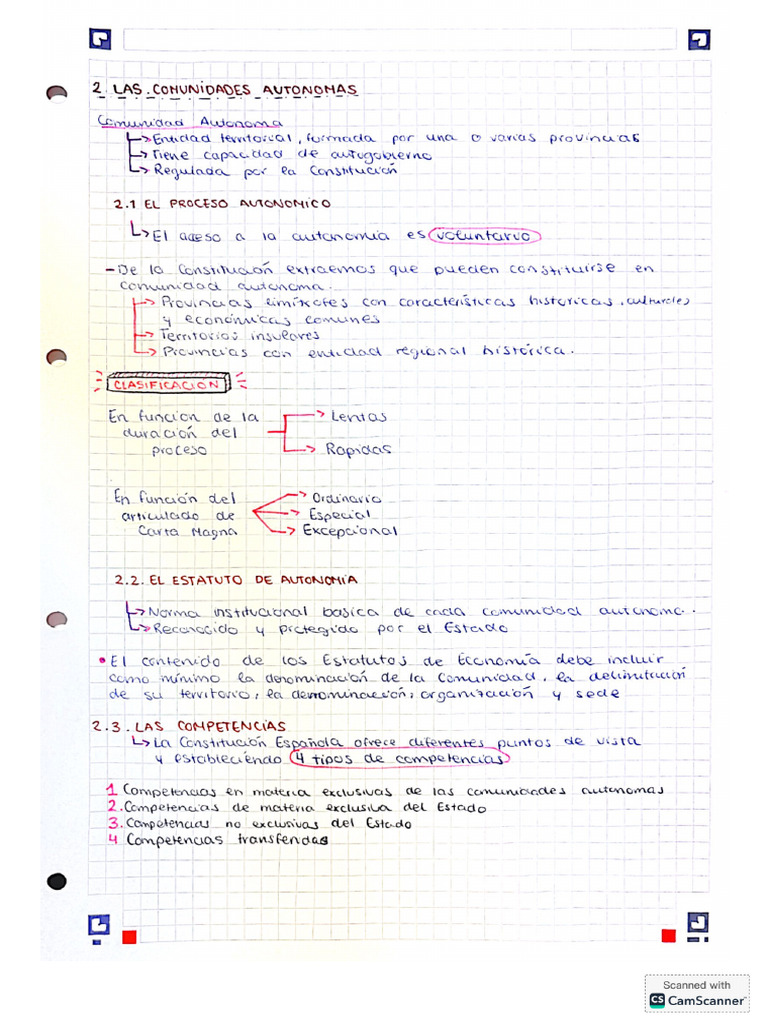 2. LAS COMUNIDADES AUTONOMAS
Comunidad Autonoma
Entidad territorial, formada por una o varias provincias
Tiene capacidad de autogobierno
Regulada por la Constitución
2.1 EL PROCESO AUTONOMICO
El acceso a la autonomía es voluntario
- De la Constitución extraemos que pueden constituirse en
comunidad autonoma.
Provincias limítrofes con características historicas, culturales
y económicas comunes
Territorios insulares
Provincias con entidad regional histórica.
CLASIFICACIÓN
En funcion de la
duración del
proceso
Lentas
Rapidas
En función del
articulado de
Carta Magna
Ordinario
Especial
Excepcional
2.2. EL ESTATUTO DE AUTONOMÍA
Norma institucional basica de cada comunidad autonoma.
Reconocido y protegido por el Estado
• El contenido de los Estatutos de Economía debe incluir
como mínimo la denominación de la Comunidad, la delimitación
de su territorio, la denominación, organización y sede
2.3. LAS COMPETENCIAS
La Constitución Española ofrece diferentes puntos de vista
y estableciendo 4 tipos de competencias
1 Competencias en materia exclusivas de las comunidades autonomas
2. Competencias de materia exclusiva del Estado
3. Competencias no exclusivas del Estado
4 Competencias transferidas
Scanned with
CS CamScanner